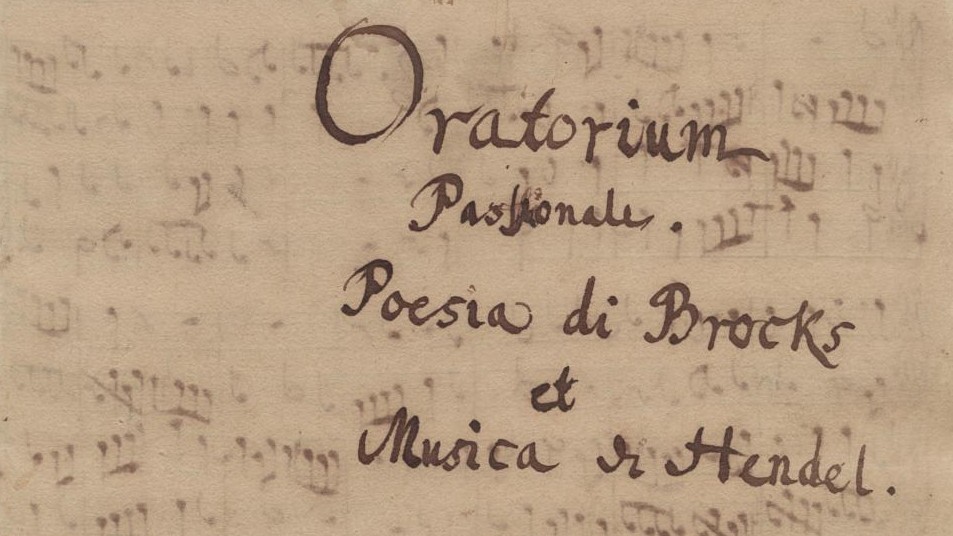 Oratorium
Passionale.
Poesia di Brocks
et
Musica di Hendel.